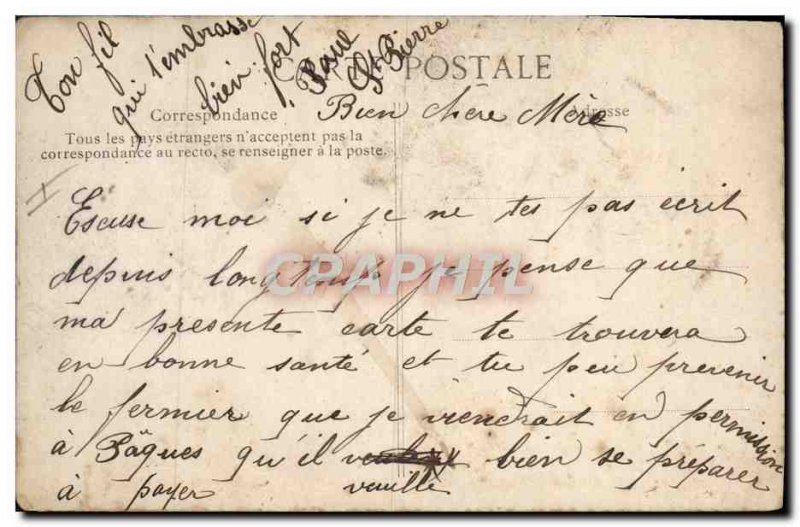 Ton fil
qui t'embrasse
bien fort
St Pierre
CARTE POSTALE
Correspondance
Adresse
Tous les pays étrangers n'acceptent pas la
correspondance au recto, se renseigner à la poste.
Bien chère Mère
Escuse moi si je ne tes pas écrit
depuis longtemps je pense que
ma présente carte te trouvera
en bonne santé et tu peu prevenir
le fermier que je viendrait en permission
à Pâques qu'il bien se préparer
à payer veuille
CPAPHIL